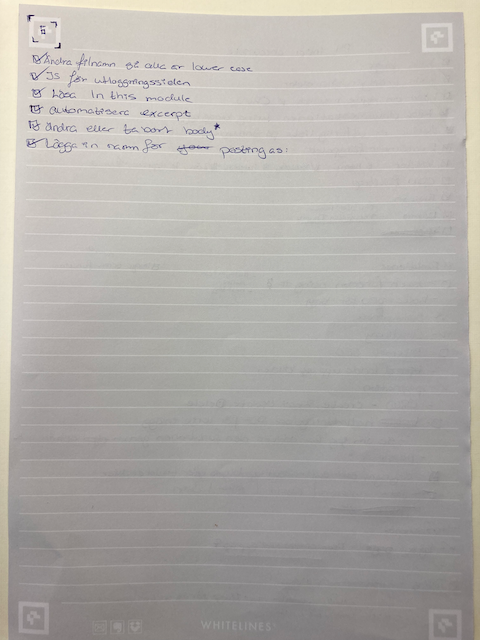 Ändra filnamn så alla är lower case
JS för utloggningssidan
Läsa In this module
automatisera excerpt
ändra eller ta bort body*
Logga in namn för posting as:
WHITELINES